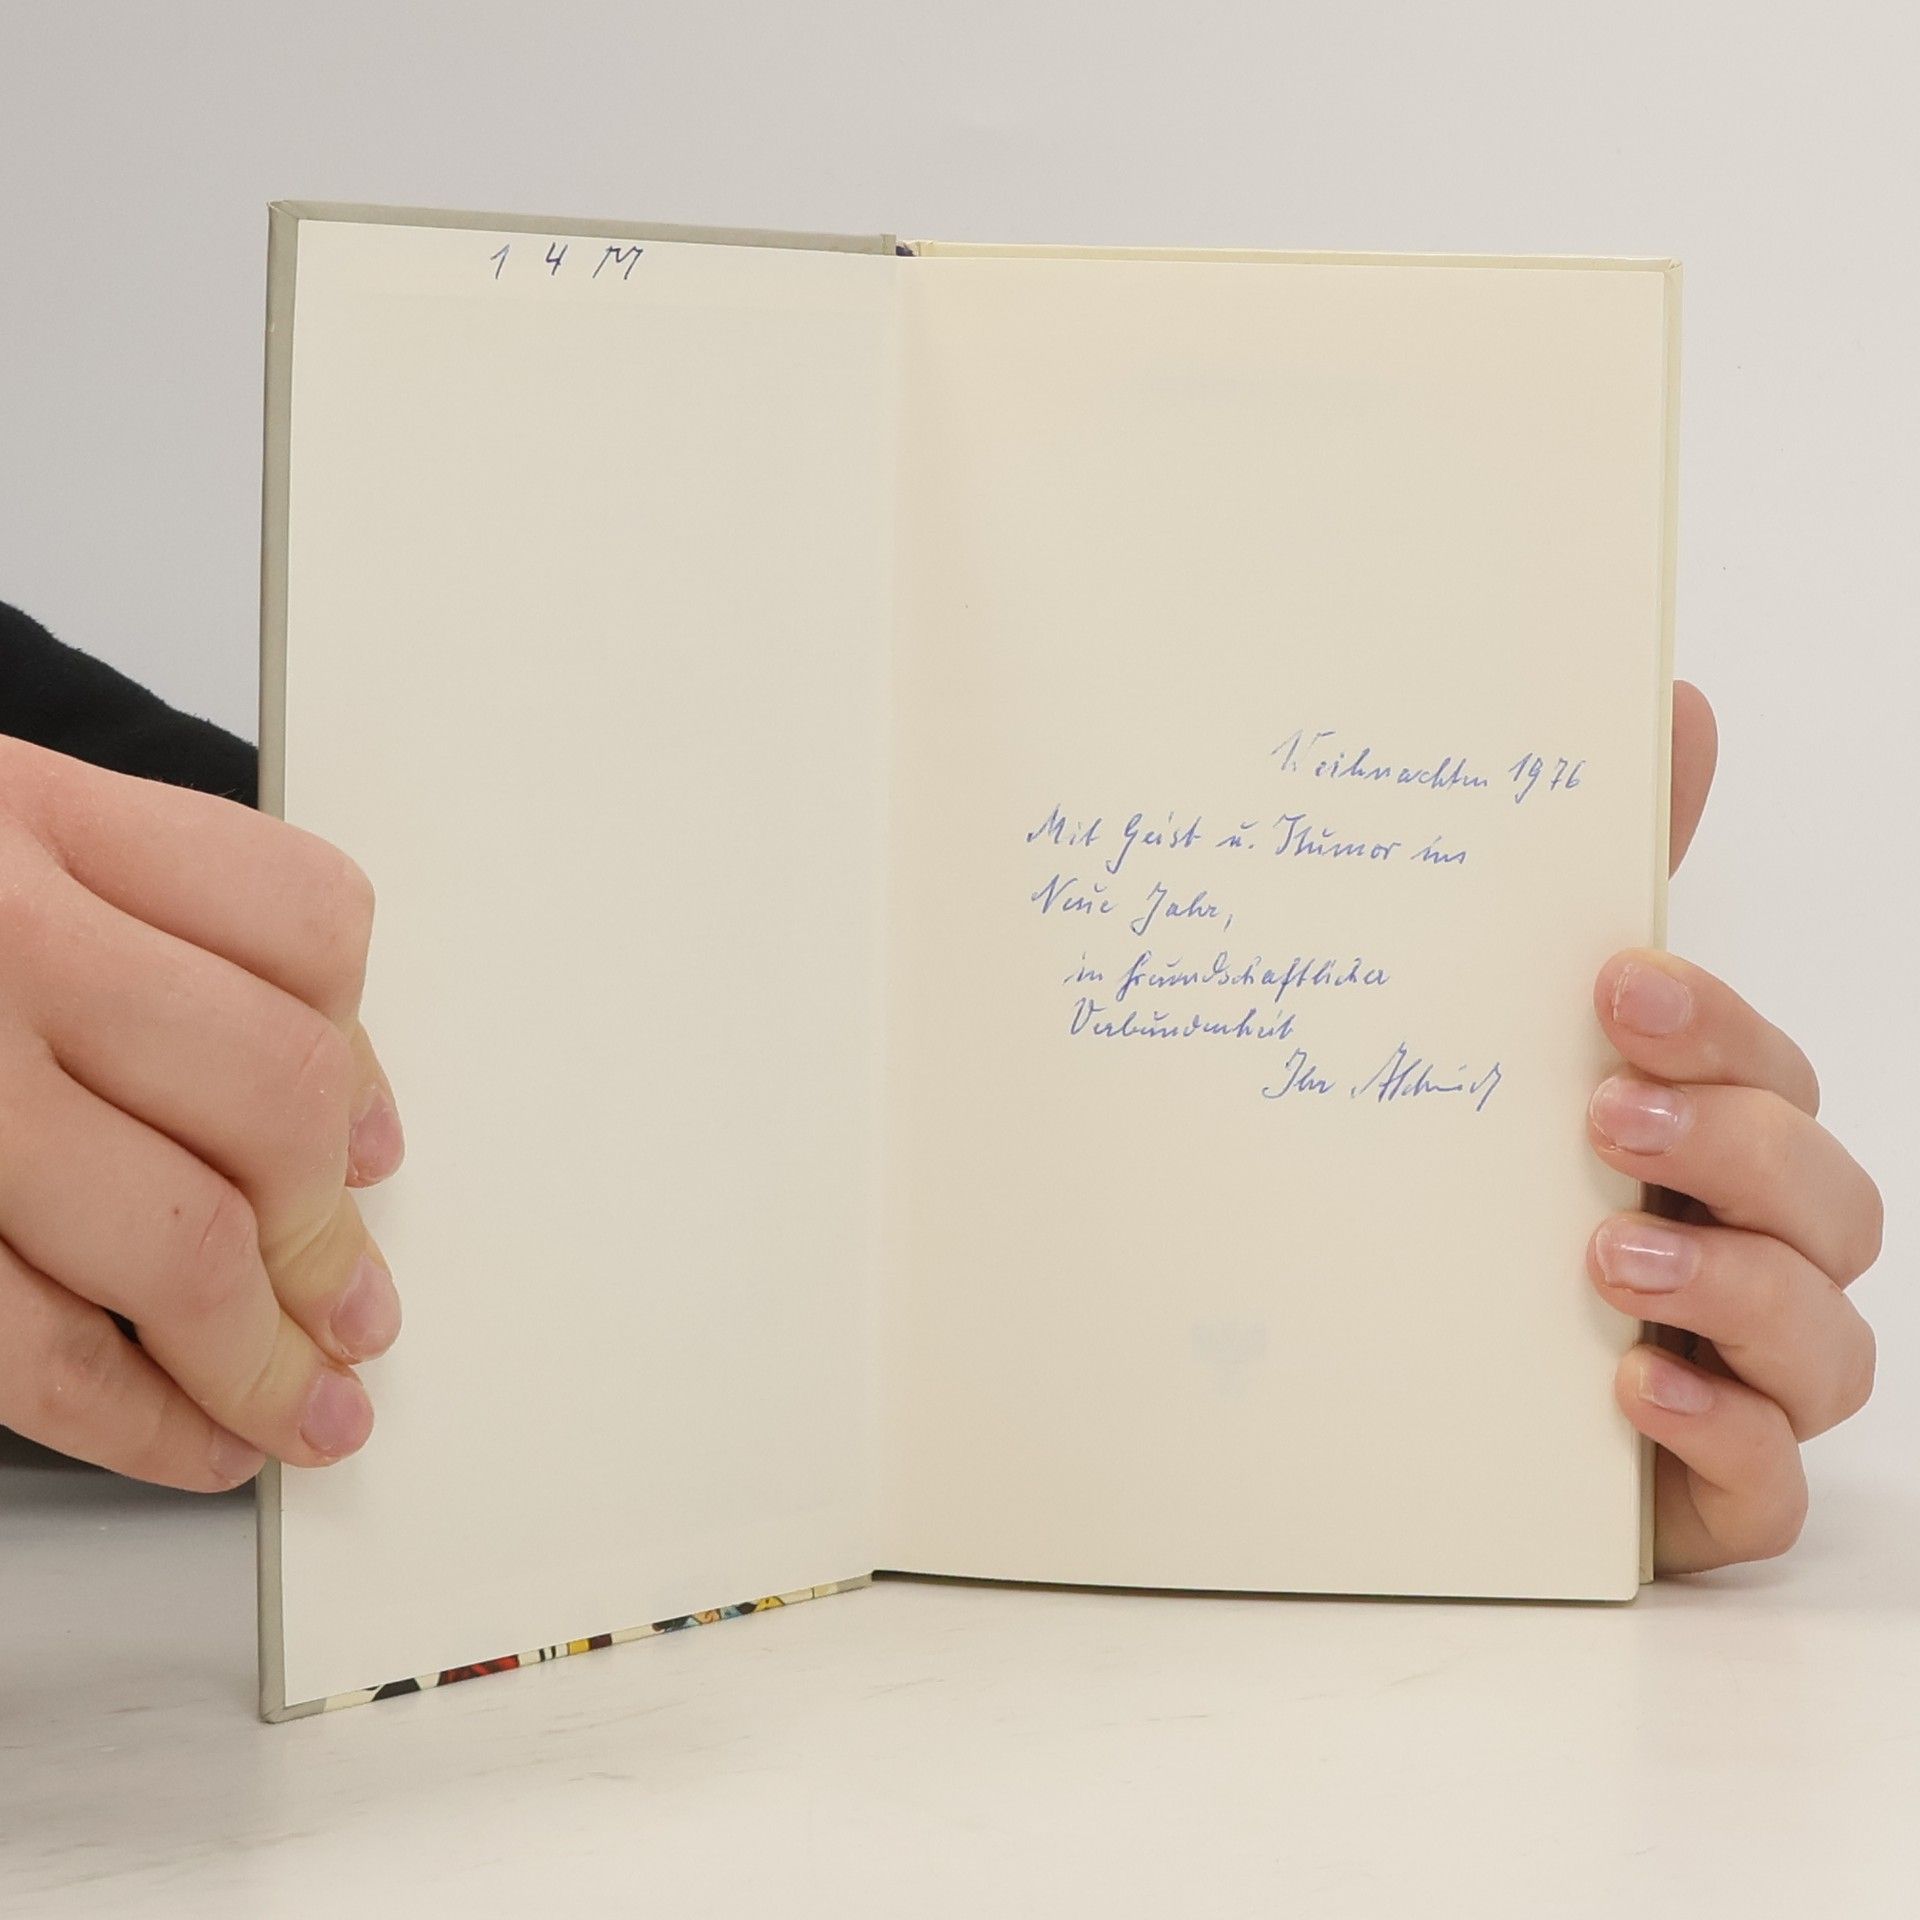 1 4 M
Weihnachten 1976
Mit Geist u. Humor ins
Neue Jahr,
in freundschaftlicher
Verbundenheit
Ihr